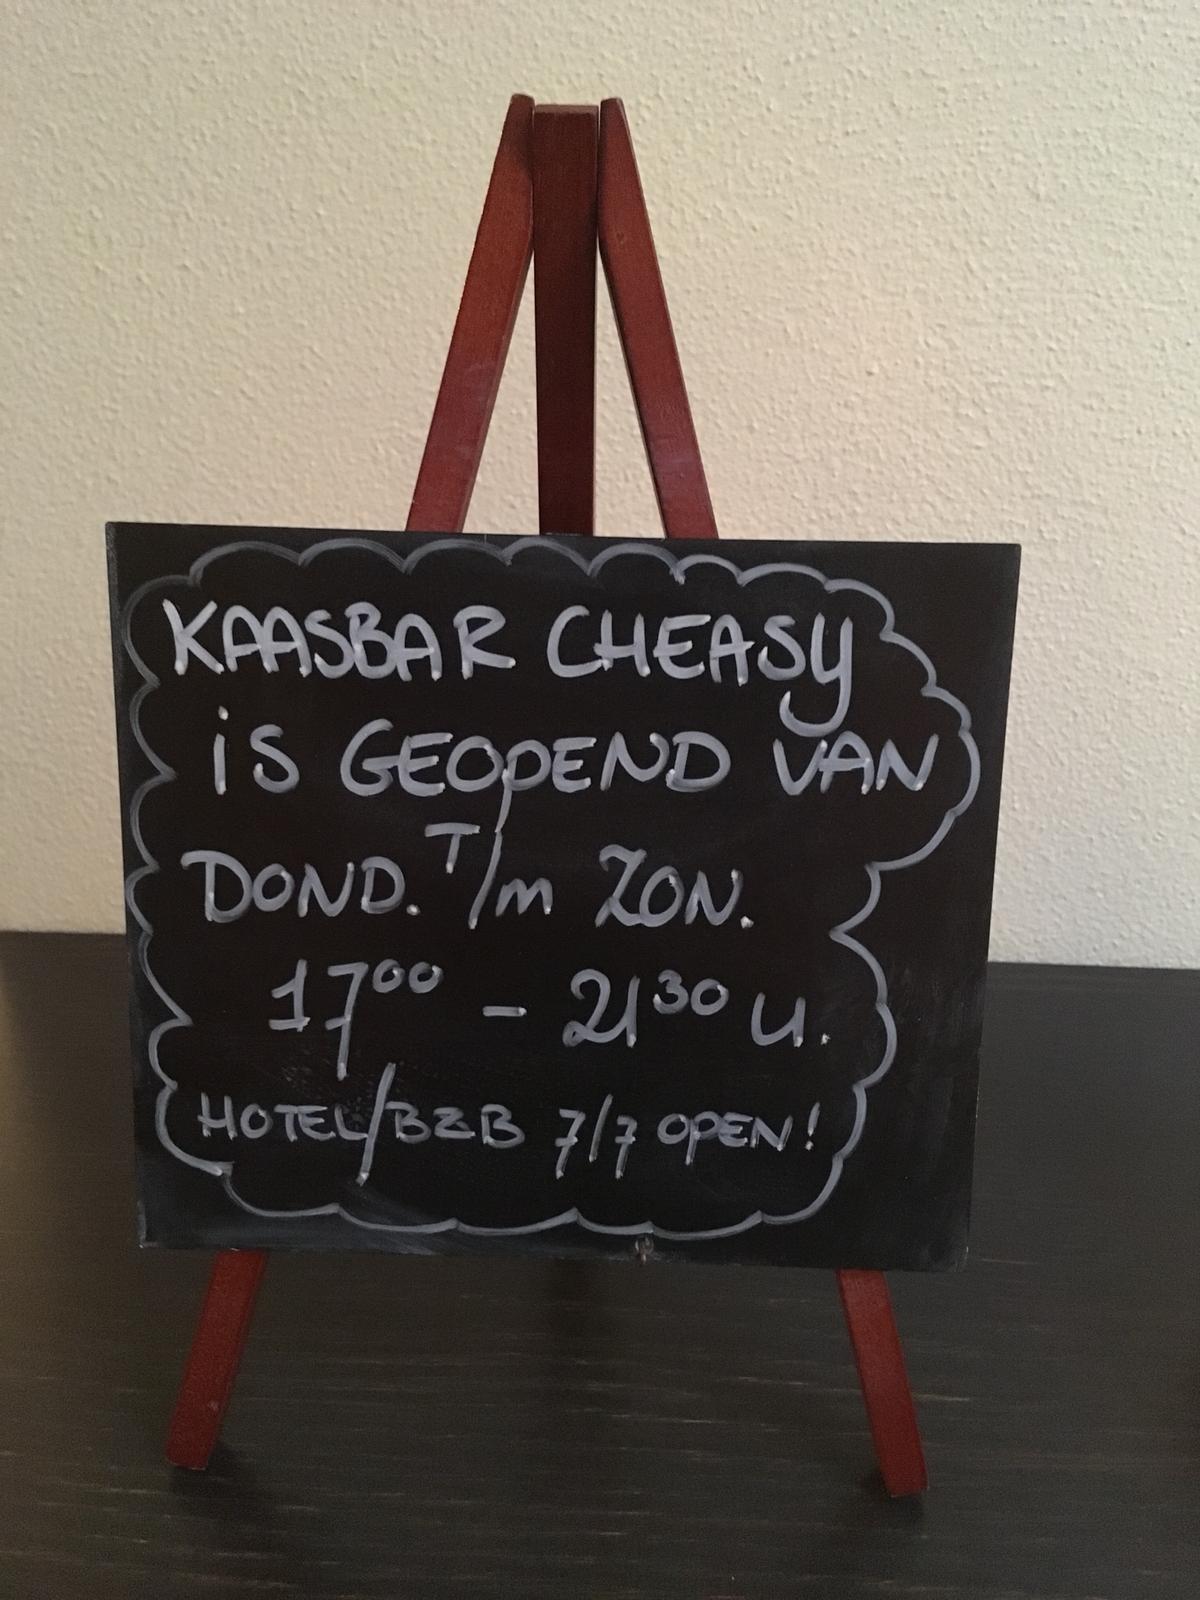 KAASBAR CHEASY
iS GEOPEND VAN
DOND. T/m ZON.
17⁰⁰ - 21³⁰ U.
HOTEL/B&B 7/7 OPEN!